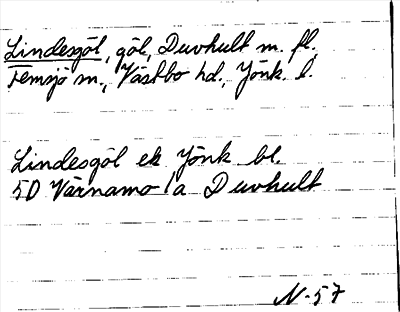 Lindesgöl, göl, Duvhult m. fl.
Femsjö sn., Västbo hd., Jönk. l.
Lindesgöl ek Jönk bl.
5D Värnamo 1a Duvhult
N-57